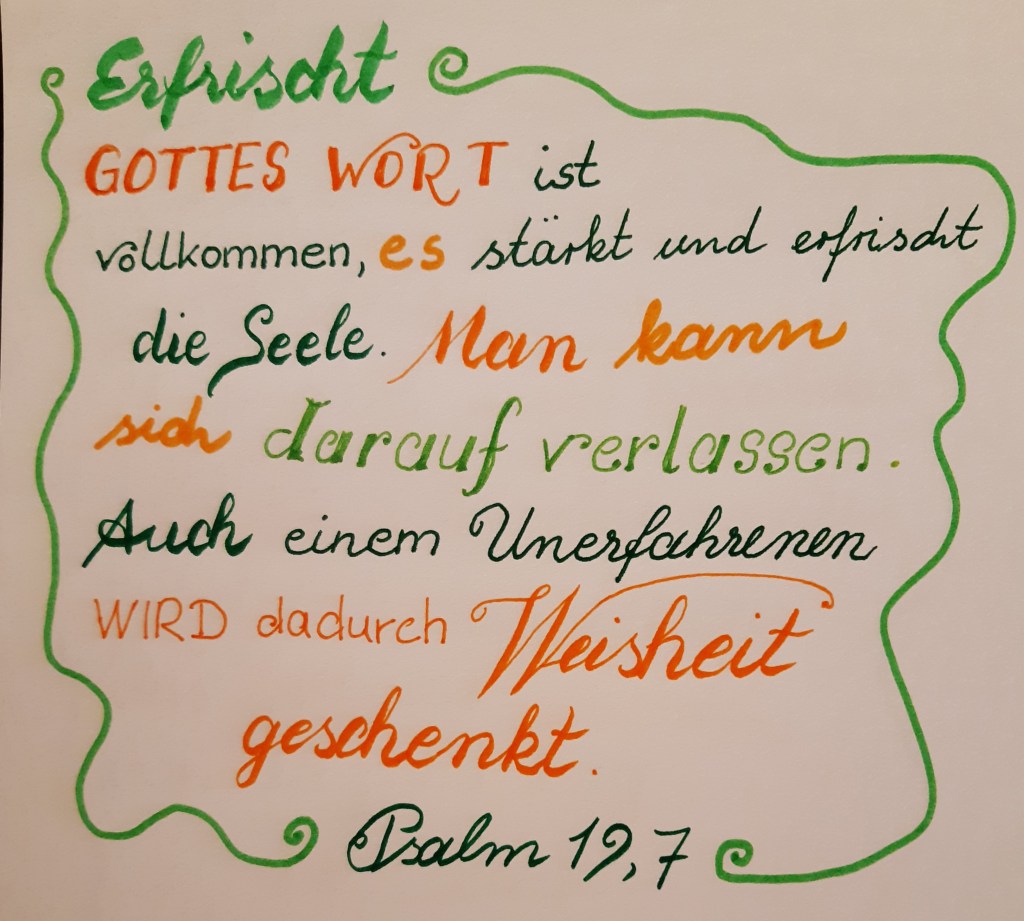 Erfrischt
GOTTES WORT ist
vollkommen, es stärkt und erfrischt
die Seele. Man kann
sich darauf verlassen.
Auch einem Unerfahrenen
WIRD dadurch Weisheit
geschenkt.
Psalm 19,7